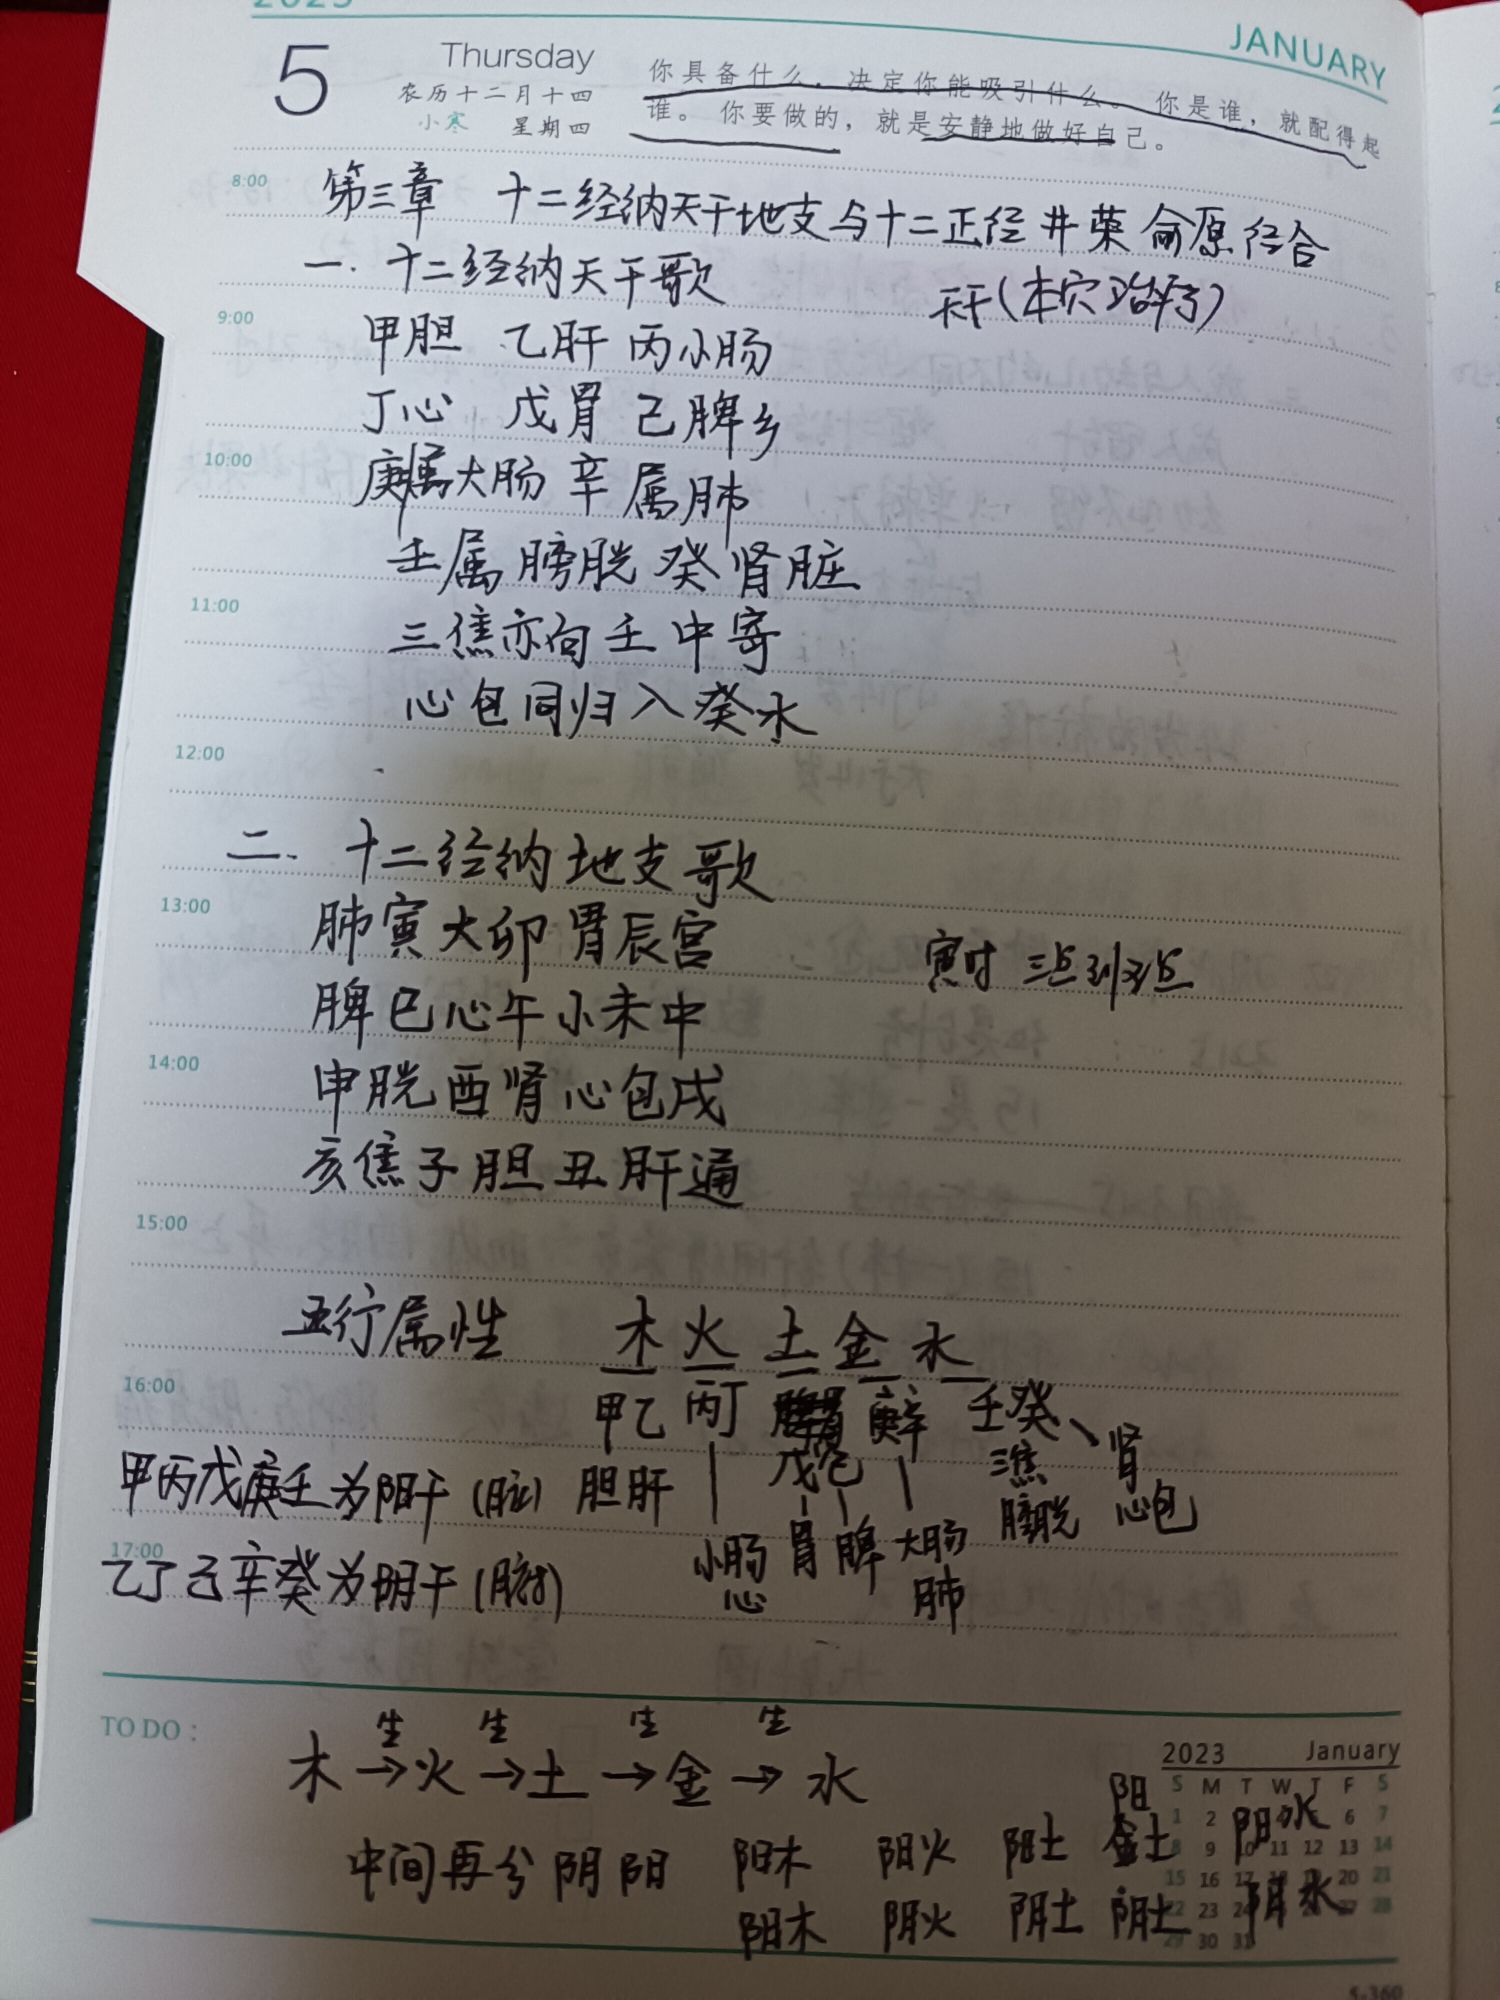 2023
JANUARY
5
Thursday
农历十二月十四
小寒 星期四
你具备什么，决定你能吸引什么。你是谁，就配得起
谁。你要做的，就是安静地做好自己。
8:00
第三章 十二经纳天干地支与十二正经井荥俞原经合
一. 十二经纳天干歌
天干(本穴治
9:00
甲胆 乙肝 丙小肠
丁心 戊胃 己脾乡
10:00
庚属大肠 辛属肺
壬属膀胱癸肾脏
11:00
三焦亦向壬中寄
心包同归入癸水
12:00
二. 十二经纳地支歌
13:00
肺寅大卯胃辰宫
寅时 三点到5点
脾巳心午小未中
14:00
申胱酉肾心包戌
亥焦子胆丑肝通
15:00
五行属性 木 火 土 金 水
16:00
甲乙 丙丁 庚辛 壬癸 肾
戊己 三焦
甲丙戊庚壬为阳干(脏) 胆肝 膀胱 心包
17:00
小肠 胃 脾 大肠
乙丁己辛癸为阴干(腑) 心 肺
TO DO:
生 生 生 生
木→火→土→金→水
2023 January
S M T W T F S
中间再分阴阳 阳木 阳火 阳土 阳金 阳水
阳木 阴火 阴土 阴土 阴水
1 2 6 7
8 9 10 11 12 13 14
15 16 17 18 20 21
22 23 24 27 28
29 30 31
5-360